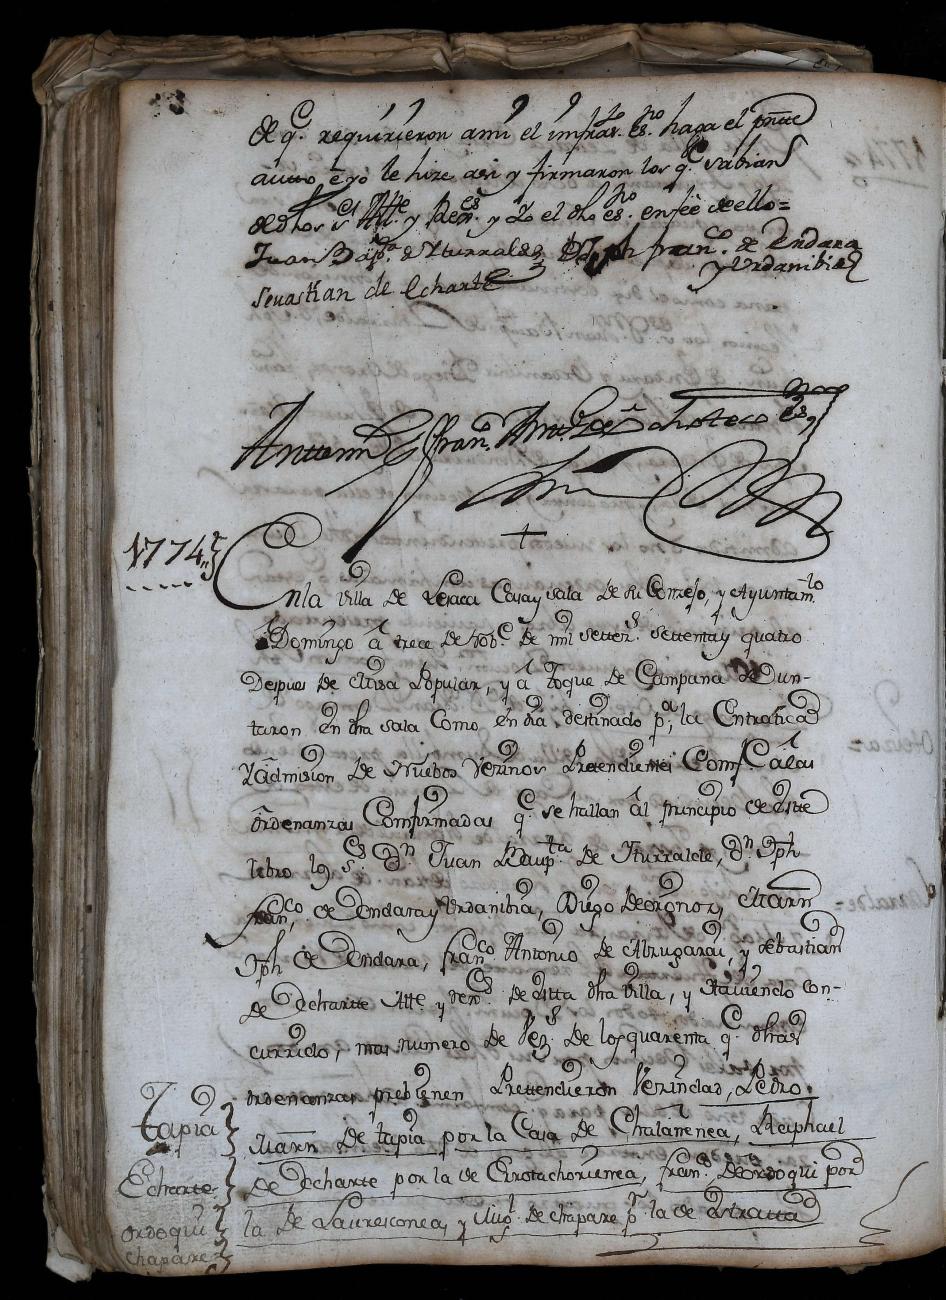 de q.e requirieron a mi el infrao. es.no haga el pntte
autto è yo le hize asi y firmaron los q.e savian
de dhos s.es Alle. y Reg.es y Yo el dho es.no en feè de ello=
Juan Bap.ta de Yturralde Jph fran.co de Endara
y Vrdanibia
Sevastian de Echarte
Antte mi fran.co Antt.o de es.no
+
1774
En la villa de Vera Casa y sala de su Conzejo, y Ayuntam.to
Domingo â trece de de mil setter.s settenta y quatro
Despues de Misa Popular, y â toque de Campana se Jun-
taron en dha sala Como en dia destinado p.a la Entrática
Y admision de Nuebos Vezinos Pretendientes Comf.e â las
ôrdenanzas Comfirmadas q.e se hallan âl principio de estte
libro los s.es D.n Juan Baup.ta De Yturralde, D.n Jph
fran.co de Endara y Vrdanibia, Diego De oronoz, Martin
Jph de Endara, fran.co Antonio de Abrugarai, y sebastian
de Echartte Alle y rex.es de estta dha villa, y Haviendo con-
currido, mas numero de Vez.s de los quarenta q.e dhas
ordenanzas preblenen Prettendieron Vezindad, Pedro
Martin De tapia por la Casa de Chalarenea, Raphael
de Echarte por la de Errotachorienea, fran.co de ordoqui por
la De Lauresconea, y Mig.l de chapare p.r la de
tapia
Echarte
ordoqui
chapare